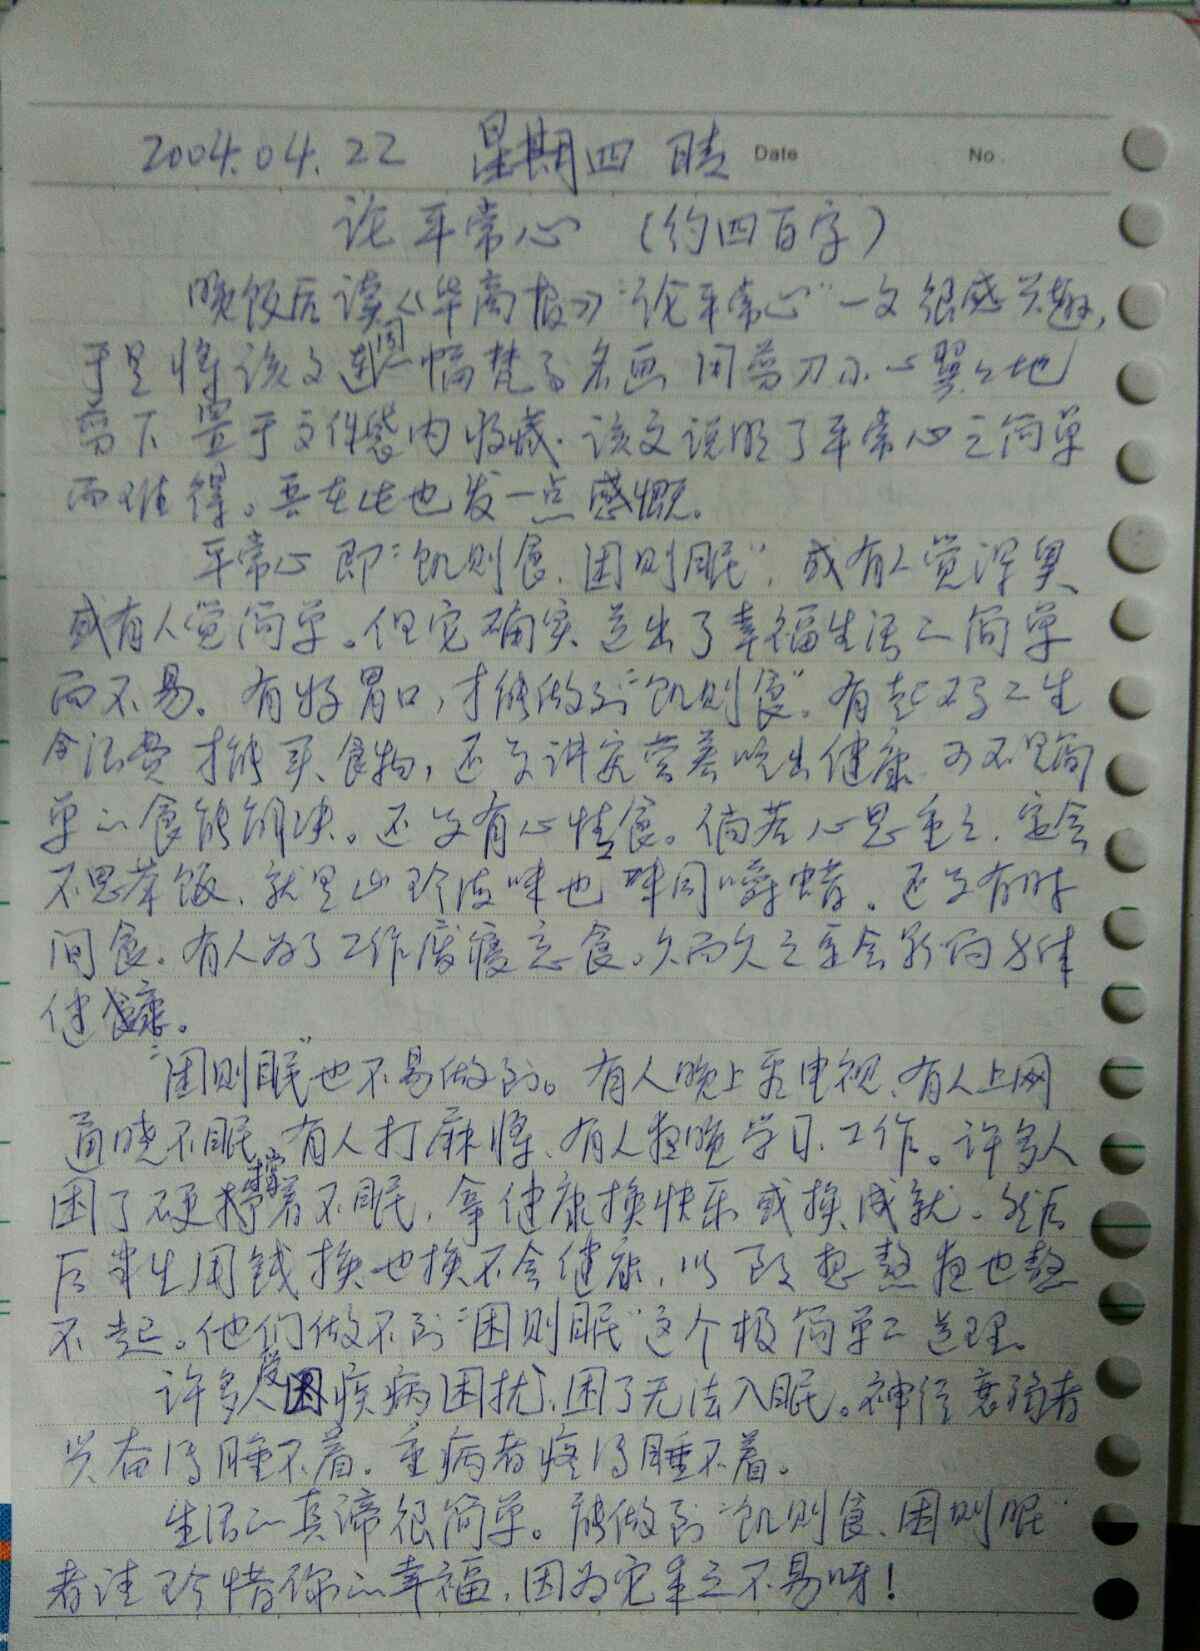 2004.04.22 星期四 晴 Date No.
论平常心 (约四百字)
晚饭后读《华商报》"论平常心"一文很感兴趣,
于是将该文连同一幅梵高名画用剪刀小心翼々地
剪下置于文件袋内收藏.该文说明了平常心之简单
而难得。吾在此也发一点感慨.
平常心即"饥则食、困则眠",或有人觉深奥、
或有人觉简单。但它确实道出了幸福生活之简单
而不易。有好胃口,才能做到"饥则食"。有起码之生
活费才能买食物,还要讲究营养吃出健康、可不是简
单的食能解决。还要有心情食。倘若心思重重、定会
不思茶饭、就是山珍海味也味同嚼蜡。还要有时
间食。有人为了工作废寝忘食。久而久之定会影响身体
健康。
"困则眠"也不易做到。有人晚上看电视、有人上网
通晓不眠、有人打麻将、有人夜晚学习、工作。许多人
困了硬撑着不眠,拿健康换快乐或换成就、然后
后半生用钱换也换不会健康,以致想熬夜也熬
不起。他们做不到"困则眠"这个极简单之道理。
许多人受疾病困扰,困了无法入眠。神经衰弱者
兴奋得睡不着.重病者疼得睡不着。
生活的真谛很简单。能做到"饥则食、困则眠"
者请珍惜你的幸福,因为它来之不易呀!